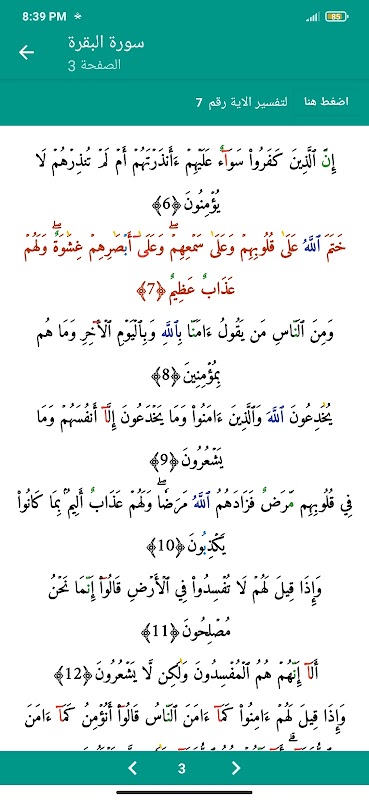 8:39 PM
85
سورة البقرة
الصفحة 3
اضغط هنا لتفسير الاية رقم 7
إِنَّ ٱلَّذِينَ كَفَرُواْ سَوَآءٌ عَلَيۡهِمۡ ءَأَنذَرۡتَهُمۡ أَمۡ لَمۡ تُنذِرۡهُمۡ لَا
يُؤۡمِنُونَ ﴿6﴾
خَتَمَ ٱللَّهُ عَلَىٰ قُلُوبِهِمۡ وَعَلَىٰ سَمۡعِهِمۡۖ وَعَلَىٰٓ أَبۡصَٰرِهِمۡ غِشَٰوَةٞۖ وَلَهُمۡ
عَذَابٌ عَظِيمٞ ﴿7﴾
وَمِنَ ٱلنَّاسِ مَن يَقُولُ ءَامَنَّا بِٱللَّهِ وَبِٱلۡيَوۡمِ ٱلۡأٓخِرِ وَمَا هُم
بِمُؤۡمِنِينَ ﴿8﴾
يُخَٰدِعُونَ ٱللَّهَ وَٱلَّذِينَ ءَامَنُواْ وَمَا يَخۡدَعُونَ إِلَّآ أَنفُسَهُمۡ وَمَا
يَشۡعُرُونَ ﴿9﴾
فِي قُلُوبِهِم مَّرَضٞ فَزَادَهُمُ ٱللَّهُ مَرَضٗاۖ وَلَهُمۡ عَذَابٌ أَلِيمُۢ بِمَا كَانُواْ
يَكۡذِبُونَ ﴿10﴾
وَإِذَا قِيلَ لَهُمۡ لَا تُفۡسِدُواْ فِي ٱلۡأَرۡضِ قَالُوٓاْ إِنَّمَا نَحۡنُ
مُصۡلِحُونَ ﴿11﴾
أَلَآ إِنَّهُمۡ هُمُ ٱلۡمُفۡسِدُونَ وَلَٰكِن لَّا يَشۡعُرُونَ ﴿12﴾
وَإِذَا قِيلَ لَهُمۡ ءَامِنُواْ كَمَآ ءَامَنَ ٱلنَّاسُ قَالُوٓاْ أَنُؤۡمِنُ كَمَآ ءَامَنَ
3